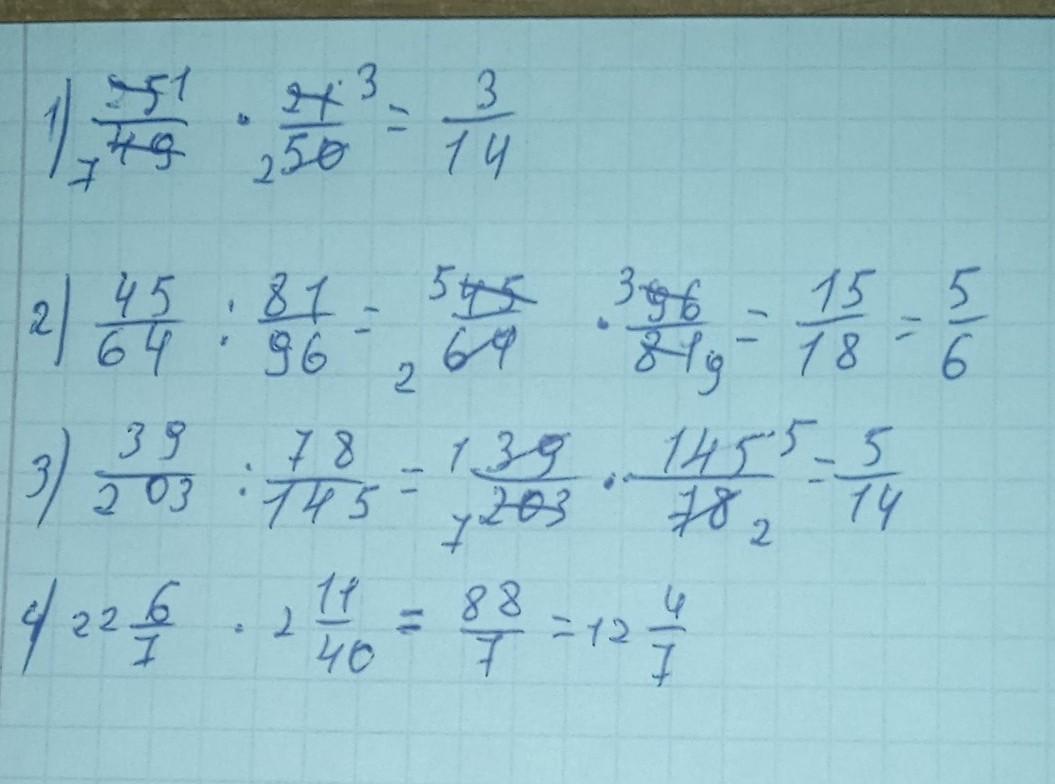 1) 25 1/49 7 · 21 3/50 2 = 3/14
2) 45/64 : 81/96 = 5 45/2 64 · 3 96/81 9 = 15/18 = 5/6
3) 39/203 : 78/145 = 1 39/7 203 · 145 5/78 2 = 5/14
4) 22 6/7 · 2 11/40 = 88/7 = 12 4/7